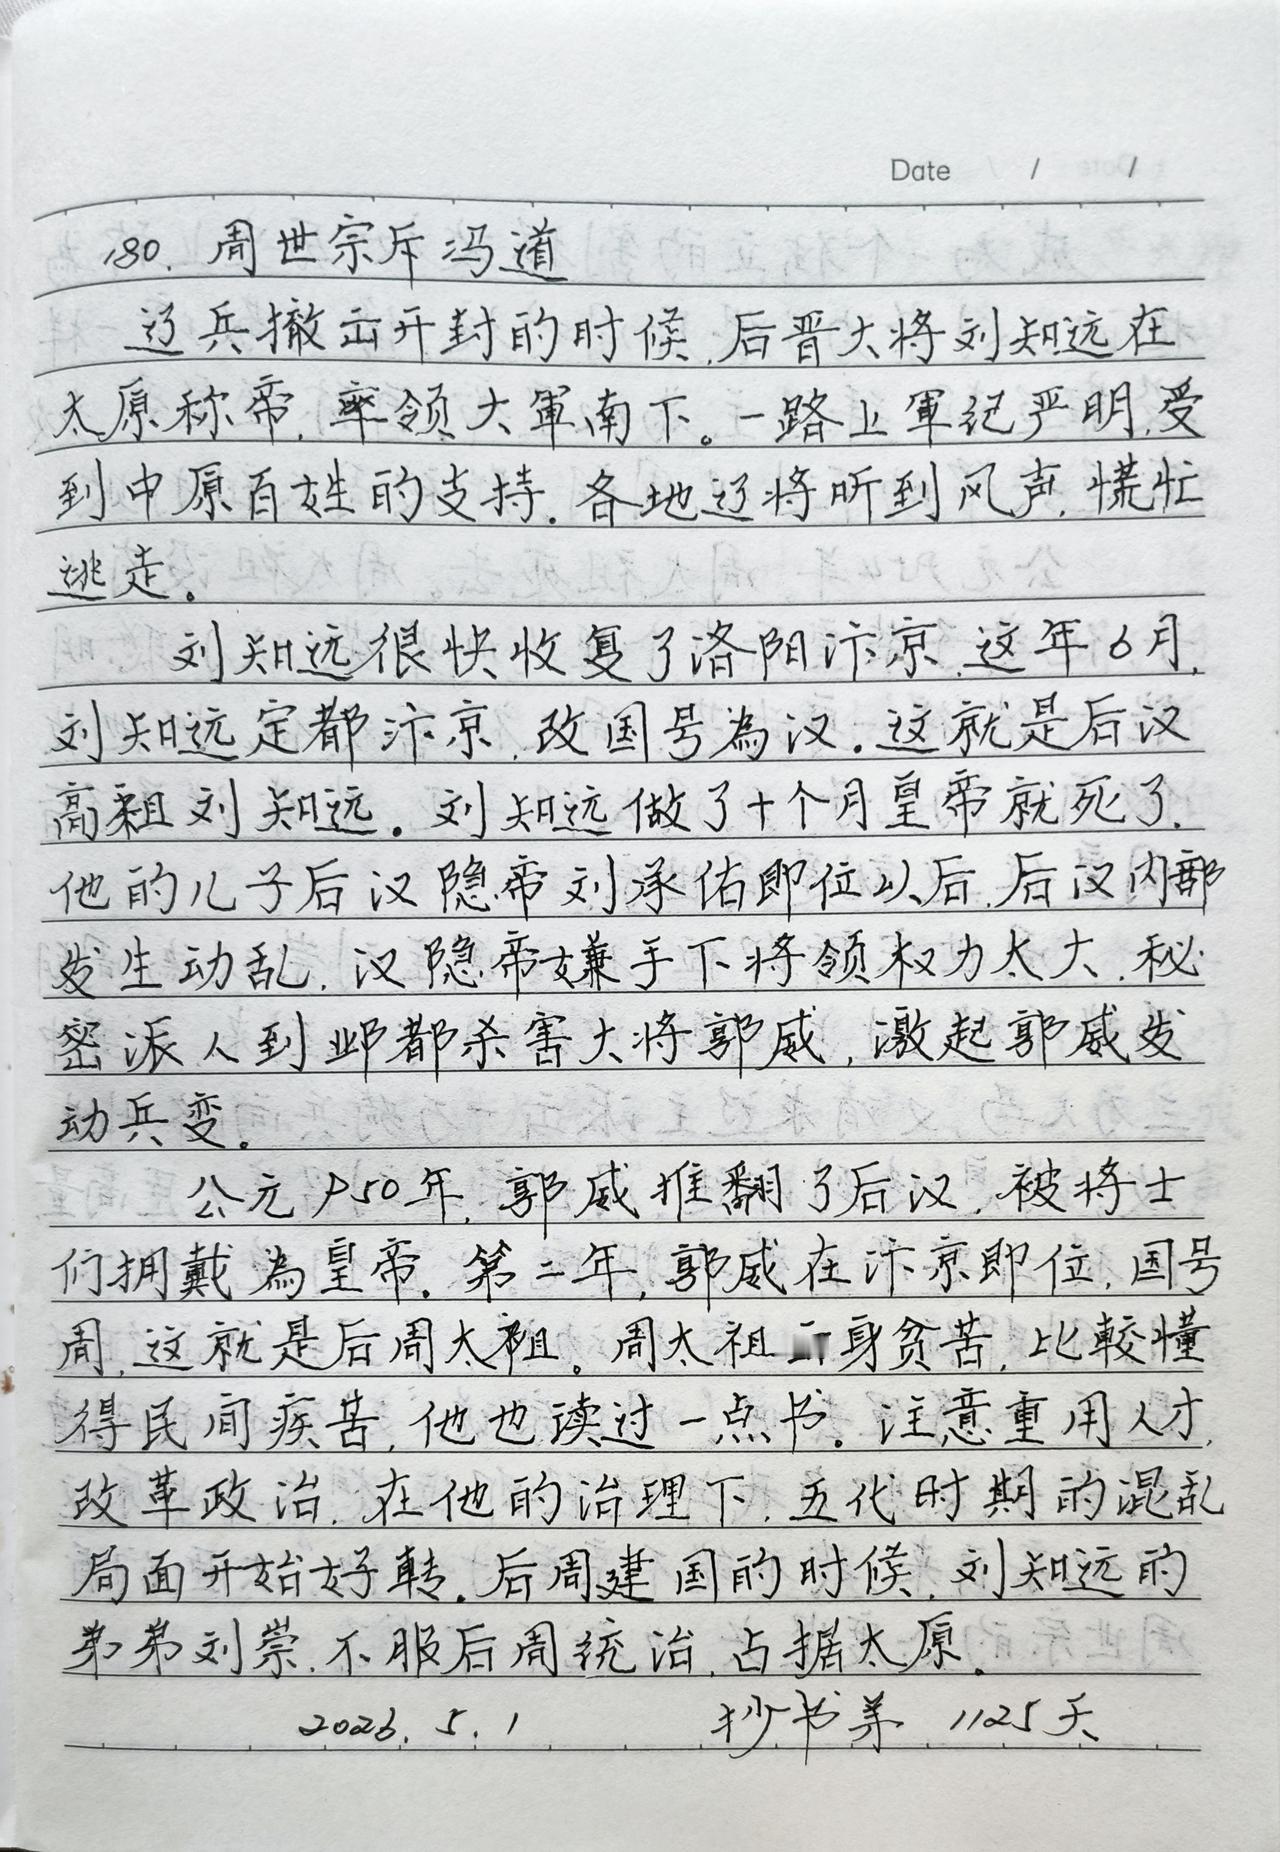 Date / /
180. 周世宗斥冯道
辽兵撤出开封的时候,后晋大将刘知远在
太原称帝,率领大軍南下。一路上軍纪严明,受
到中原百姓的支持.各地辽将听到风声,慌忙
逃走。
刘知远很快收复了洛阳汴京.这年6月,
刘知远定都汴京,改国号為汉.这就是后汉
高祖刘知远.刘知远做了十个月皇帝就死了.
他的儿子后汉隐帝刘承佑即位以后,后汉内部
发生动乱,汉隐帝嫌手下将领权力太大,秘
密派人到邺都杀害大将郭威,激起郭威发
动兵变。
公元950年,郭威推翻了后汉,被将士
们拥戴為皇帝.第二年,郭威在汴京即位,国号
周,这就是后周太祖。周太祖出身贫苦,比較懂
得民间疾苦,他也读过一点书。注意重用人才,
改革政治,在他的治理下,五代时期的混乱
局面开始好转.后周建国的时候,刘知远的
弟弟刘崇,不服后周统治,占据太原.
2026.5.1 抄书第1125天